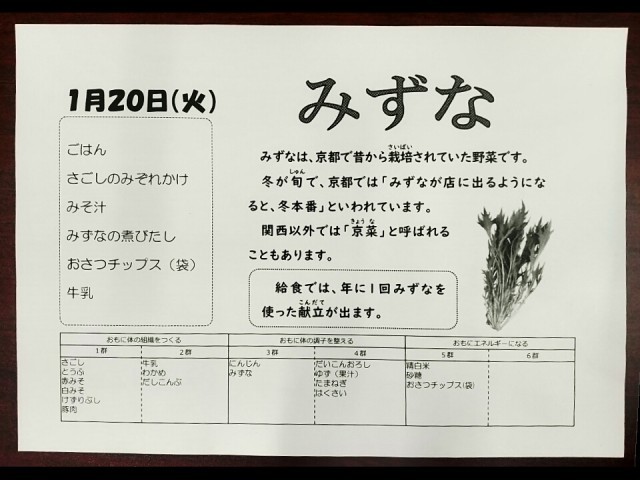 1月20日(火)
ごはん
さごしのみぞれかけ
みそ汁
みずなの煮びたし
おさつチップス（袋）
牛乳
みずな
みずなは、京都で昔から栽培されていた野菜です。
さいばい
冬が旬で、京都では「みずなが店に出るようにな
しゅん
ると、冬本番」といわれています。
関西以外では「京菜」と呼ばれる
きょうな
こともあります。
給食では、年に1回みずなを
使った献立が出ます。
こんだて
おもに体の組織をつくる
おもに体の調子を整える
おもにエネルギーになる
1群
2群
3群
4群
5群
6群
さごし
とうふ
赤みそ
白みそ
けずりぶし
豚肉
牛乳
わかめ
だしこんぶ
にんじん
みずな
だいこんおろし
ゆず（果汁）
たまねぎ
はくさい
精白米
砂糖
おさつチップス(袋)